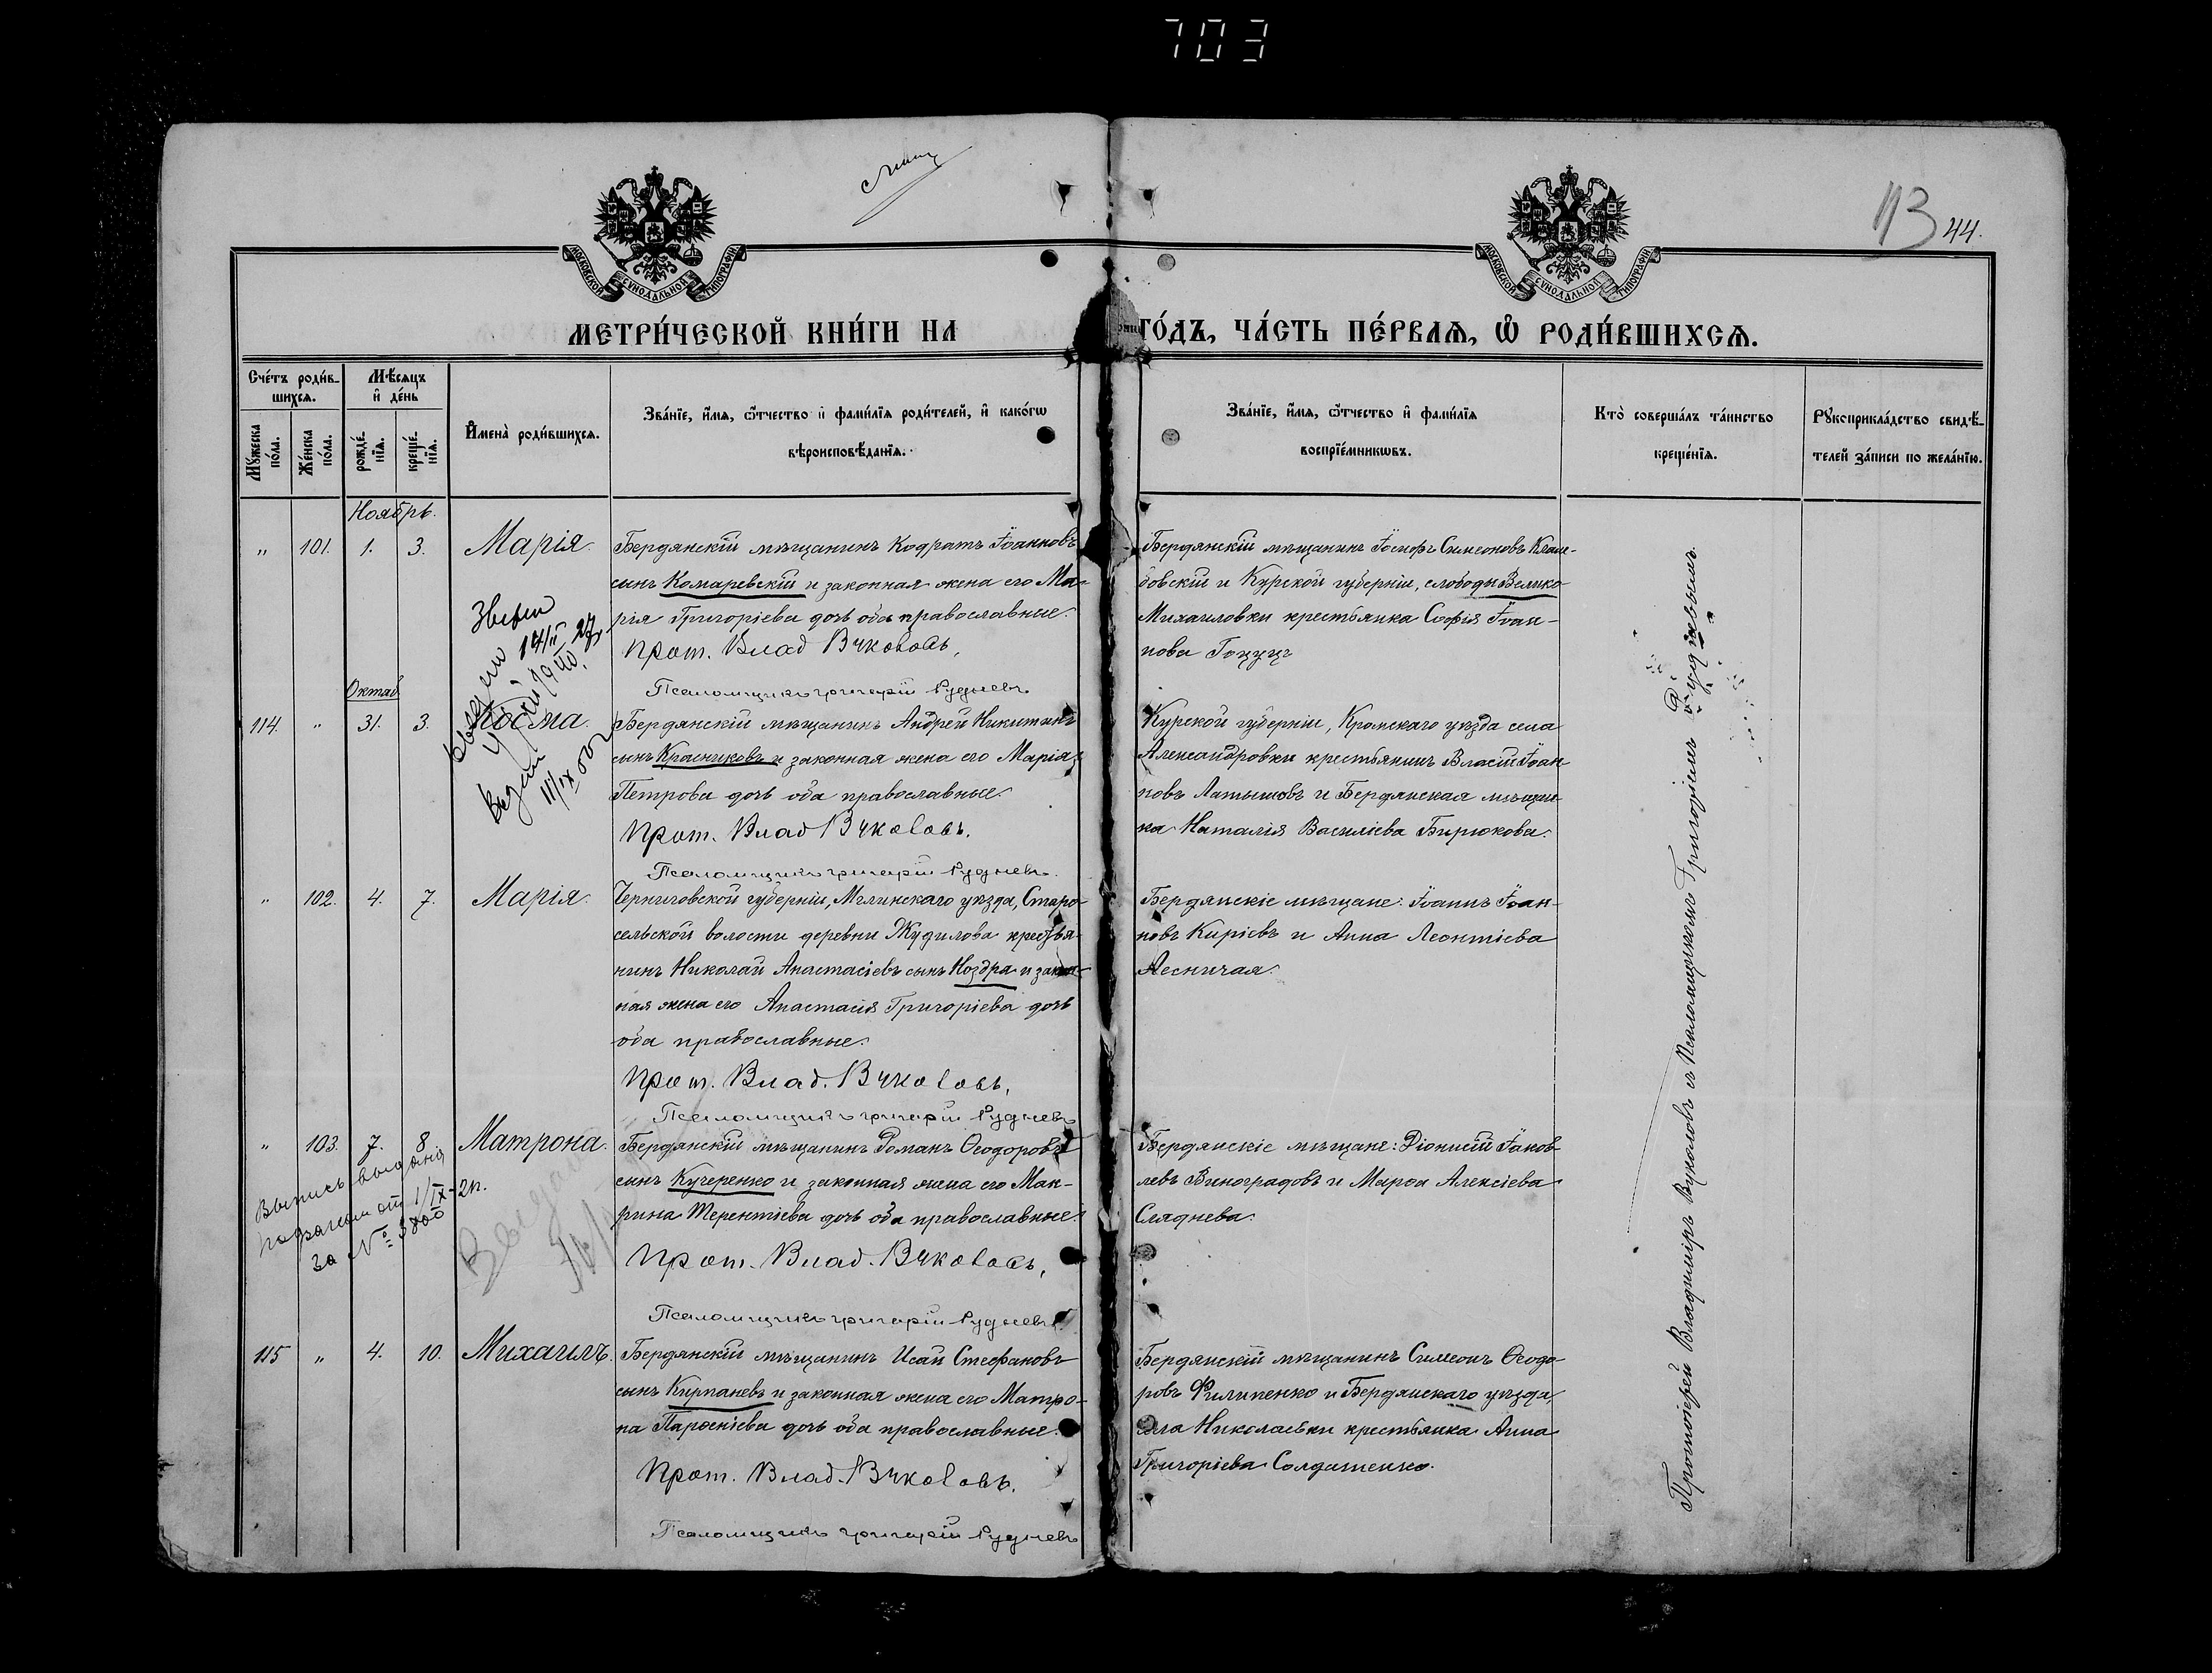 703
113 44.
МОСКОВСКОЙ СѴНОДАЛЬНОЙ ТИПОГРАФІИ
МОСКОВСКОЙ СѴНОДАЛЬНОЙ ТИПОГРАФІИ
МЕТРИ́ЧЕСКОЙ КНИ́ГИ НА
ГО́ДЪ, ЧА́СТЬ ПЕ́РВАЯ, Ѡ҆ РОДИ́ВШИХСѦ.
Сче́тъ роди́в-
шихсѧ.
Мѣ́сѧцъ
и҆ де́нь
Мꙋ́жеска
по́ла.
Же́нска
по́ла.
рожде́-
нїѧ.
креще́-
нїѧ.
И҆мена̀ роди́вшихсѧ.
Зва́нїе, и҆́мѧ, ѻ҆́тчество и҆ фами́лїѧ роди́телей, и҆ како́гѡ
вѣроисповѣ́данїѧ.
Зва́нїе, и҆́мѧ, ѻ҆́тчество и҆ фами́лїѧ
воспрїе́мникѡвъ.
Кто̀ соверша́лъ та́инство
креще́нїѧ.
Рꙋкоприкла́дство свидѣ́-
телей за́писи по жела́нїю.
Ноябрь.
" 101. 1. 3. Марія.
Бердянскій мѣщанинъ Кодратъ Іоанновъ
сынъ Комаревскій и законная жена его Ма-
рія Григоріева дочь оба православные.
Прот. Влад Вуколовъ,
Псаломщикъ Григорій Рудневъ
Бердянскій мѣщанинъ Іосифъ Симеоновъ
и Курской губерніи, слободы Велико
Михаиловки крестьянка Софія Іоан-
нова
Октяб.
114. " 31. 3. Косма.
Бердянскій мѣщанинъ Андрей Никитинъ
сынъ Красниковъ и законная жена его Марія
Петрова дочь оба православные.
Прот. Влад Вуколовъ.
Псаломщикъ Григорій Рудневъ.
Курской губерніи, Кромскаго уѣзда села
Александровки крестьянинъ Власій Іоан
новъ Латышовъ и Бердянская мѣщан-
ка Наталія Василіева Бирюкова.
" 102. 4. 7. Марія.
Черниговской губерніи, Мглинскаго уѣзда, Старо-
сельской волости деревни Жудилова крестья-
нинъ Николай Анастасіевъ сынъ Ноздра и закон-
ная жена его Анастасія Григоріева дочь
оба православные.
Прот. Влад. Вуколовъ,
Псаломщикъ Григорій Рудневъ
Бердянскіе мѣщане: Іоаннъ Іоан-
новъ Киріевъ и Анна Леонтіева
Лесничая.
" 103. 7. 8. Матрона.
Бердянскій мѣщанинъ Романъ Ѳеодоровъ
сынъ Кучеренко и законная жена его Мак-
рина Терентіева дочь оба православные.
Прот. Влад. Вуколовъ,
Псаломщикъ Григорій Рудневъ
Бердянскіе мѣщане: Діонисій Іаков-
левъ Виноградовъ и Марѳа Алексіева
Сляднева.
Выпись выдана
за №
115 " 4. 10. Михаилъ.
Бердянскій мѣщанинъ Исай Стефановъ
сынъ Кирпаневъ и законная жена его Матро-
на Парѳеніева дочь оба православные.
Прот. Влад. Вуколовъ.
Псаломщикъ Григорій Рудневъ
Бердянскій мѣщанинъ Симеонъ Ѳеодо-
ровъ Филипенко и Бердянскаго уѣзда,
села Николаевки крестьянка Анна
Григоріева Солдатенко.
Протоіерей Владиміръ Вуколовъ съ Псаломщикомъ Григоріемъ Рудневымъ.